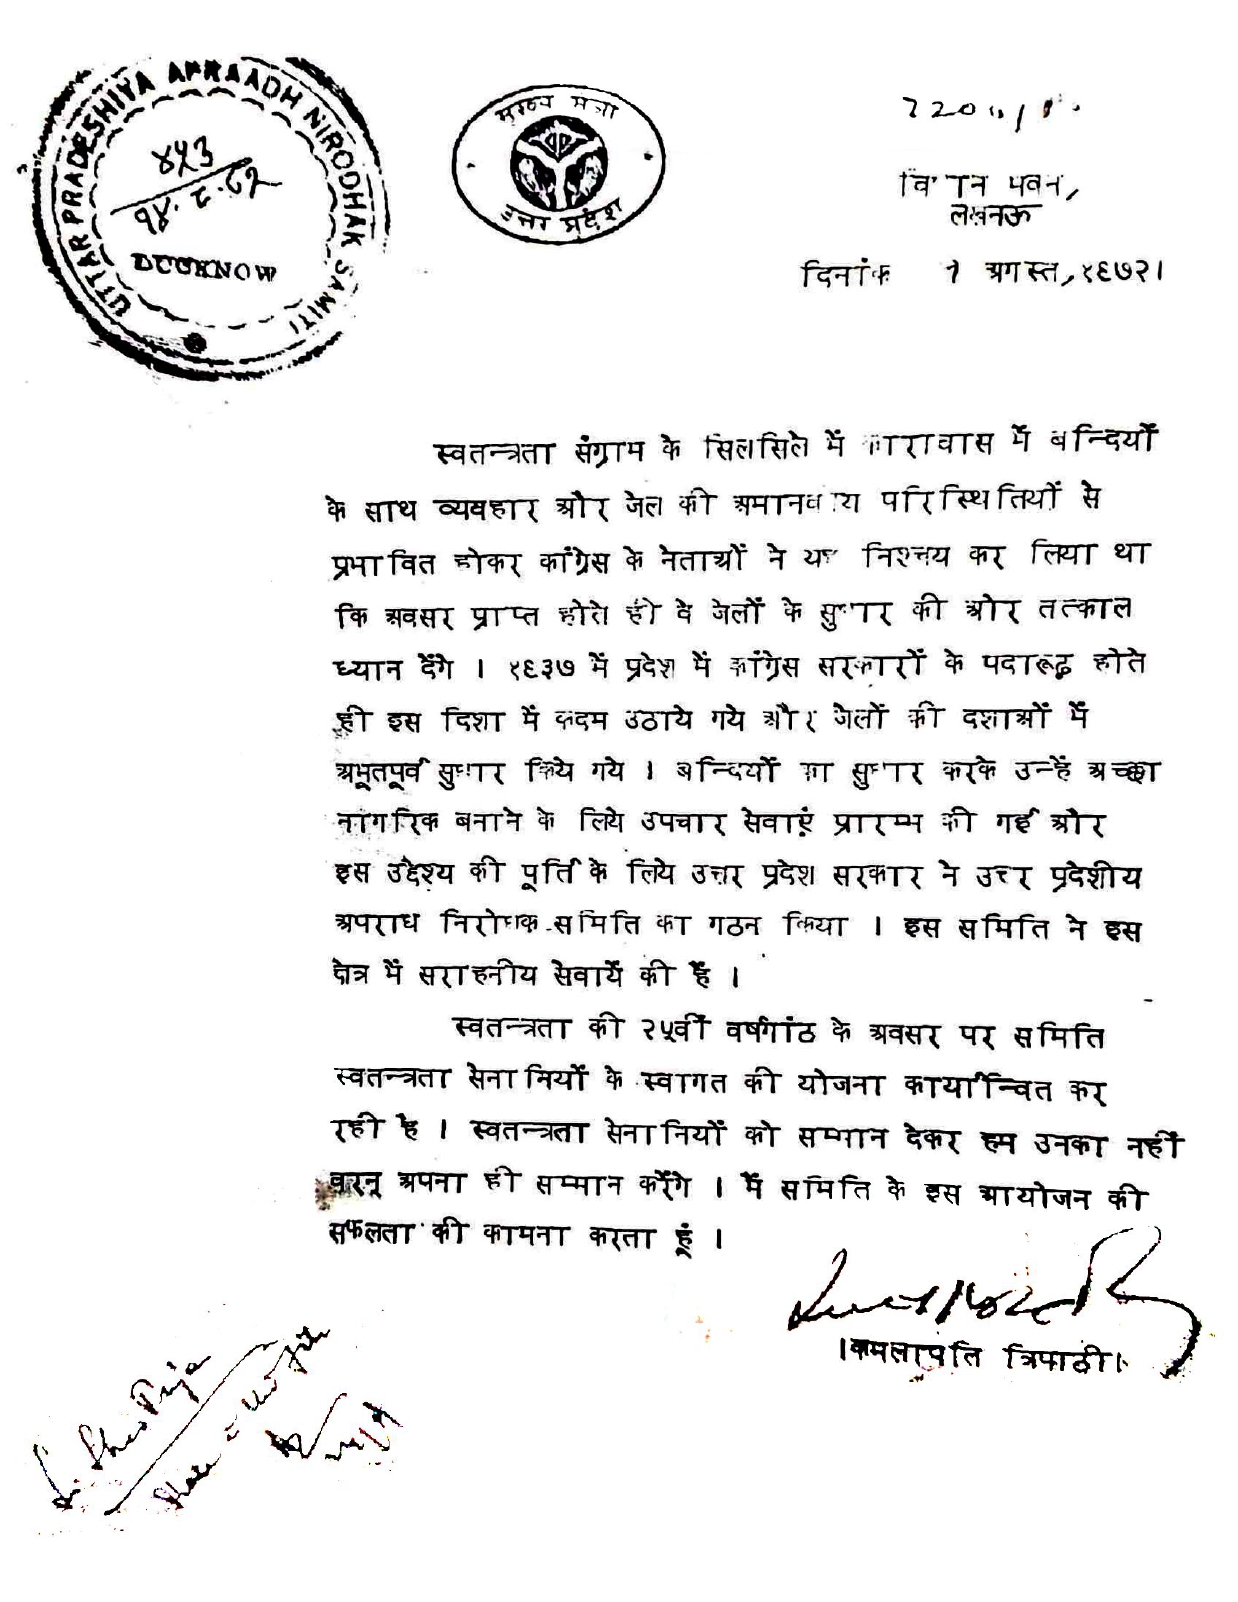 UTTAR PRADESHIYA APRAADH NIRODHAK SAMITI
४५३
LUCKNOW
मुख्य मंत्री
उत्तर प्रदेश
विधान भवन,
लखनऊ
दिनांक 1 अगस्त, १९७२।
स्वतन्त्रता संग्राम के सिलसिले में कारावास में बन्दियों
के साथ व्यवहार और जेल की अमानवीय परिस्थितियों से
प्रभावित होकर कांग्रेस के नेताओं ने यह निश्चय कर लिया था
कि अवसर प्राप्त होते ही वे जेलों के सुधार की ओर तत्काल
ध्यान देंगे । १९३७ में प्रदेश में कांग्रेस सरकारों के पदारूढ़ होते
ही इस दिशा में कदम उठाये गये और जेलों की दशाओं में
अभूतपूर्व सुधार किये गये । बन्दियों का सुधार करके उन्हें अच्छा
नागरिक बनाने के लिये उपचार सेवाएं प्रारम्भ की गई और
इस उद्देश्य की पूर्ति के लिये उत्तर प्रदेश सरकार ने उत्तर प्रदेशीय
अपराध निरोधक समिति का गठन किया । इस समिति ने इस
क्षेत्र में सराहनीय सेवायें की हैं ।
स्वतन्त्रता की २५वीं वर्षगांठ के अवसर पर समिति
स्वतन्त्रता सेनानियों के स्वागत की योजना कार्यान्वित कर
रही है । स्वतन्त्रता सेनानियों को सम्मान देकर हम उनका नहीं
वरन् अपना ही सम्मान करेंगे । मैं समिति के इस आयोजन की
सफलता की कामना करता हूं ।
।कमलापति त्रिपाठी।